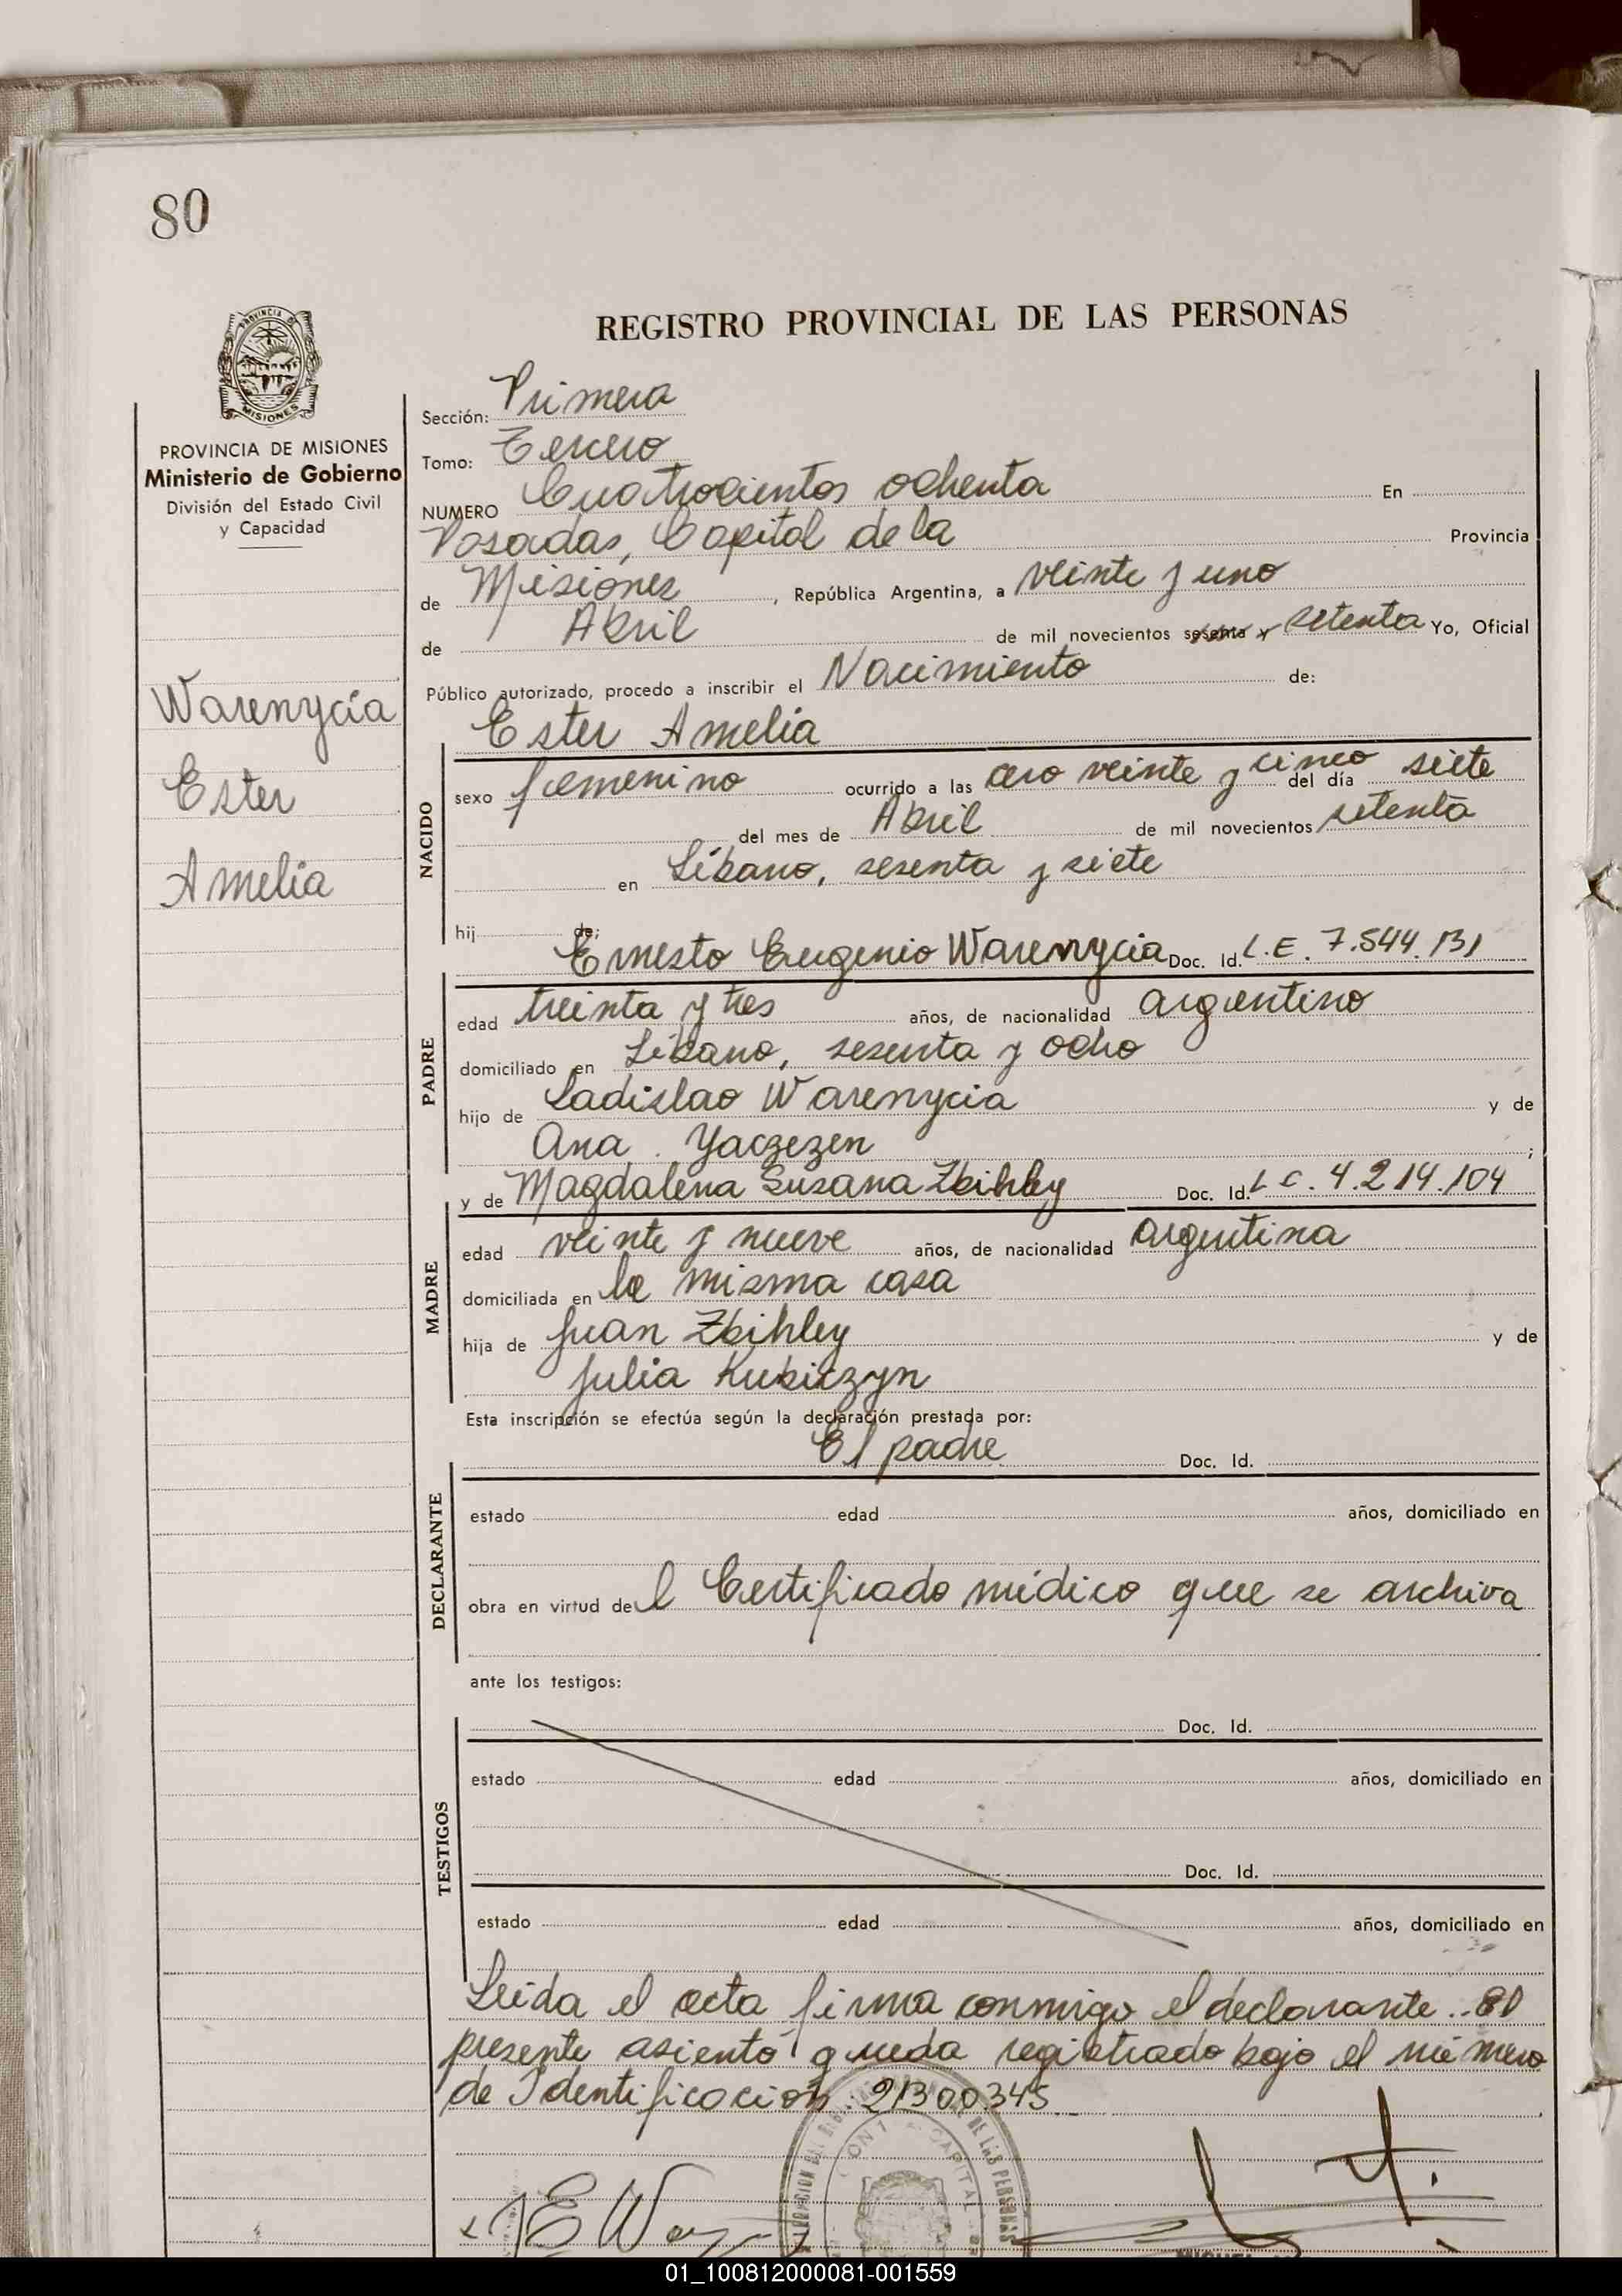 80
REGISTRO PROVINCIAL DE LAS PERSONAS
PROVINCIA DE MISIONES
Ministerio de Gobierno
División del Estado Civil
y Capacidad
Warenycia
Ester
Amelia
Sección: Primera
Tomo: Tercero
NUMERO Cuatrocientos ochenta En
Posadas, Capital de la Provincia
de Misiones, República Argentina, a veinte y uno
de Abril de mil novecientos sesenta y setenta Yo, Oficial
Público autorizado, procedo a inscribir el Nacimiento de:
Ester Amelia
NACIDO
sexo femenino ocurrido a las cero veinte y cinco del día siete
del mes de Abril de mil novecientos setenta
en Líbano, sesenta y siete
hij de:
Ernesto Eugenio Warenycia Doc. Id. L.E. 7.544.131
PADRE
edad treinta y tres años, de nacionalidad argentino
domiciliado en Líbano, sesenta y ocho
hijo de Ladislao Warenycia y de
Ana Yaczezen ;
y de Magdalena Susana Zbihley Doc. Id. L C. 4.214.104
MADRE
edad veinte y nueve años, de nacionalidad argentina
domiciliada en la misma casa
hija de Juan Zbihley y de
Julia Kubiczyn
Esta inscripción se efectúa según la declaración prestada por:
El padre Doc. Id.
DECLARANTE
estado edad años, domiciliado en
obra en virtud del Certificado médico que se archiva
ante los testigos:
TESTIGOS
Doc. Id.
estado edad años, domiciliado en
Doc. Id.
estado edad años, domiciliado en
Leída el acta firma conmigo el declarante.. El
presente asiento queda registrado bajo el número
de Identificación: 21300345
01_100812000081-001559